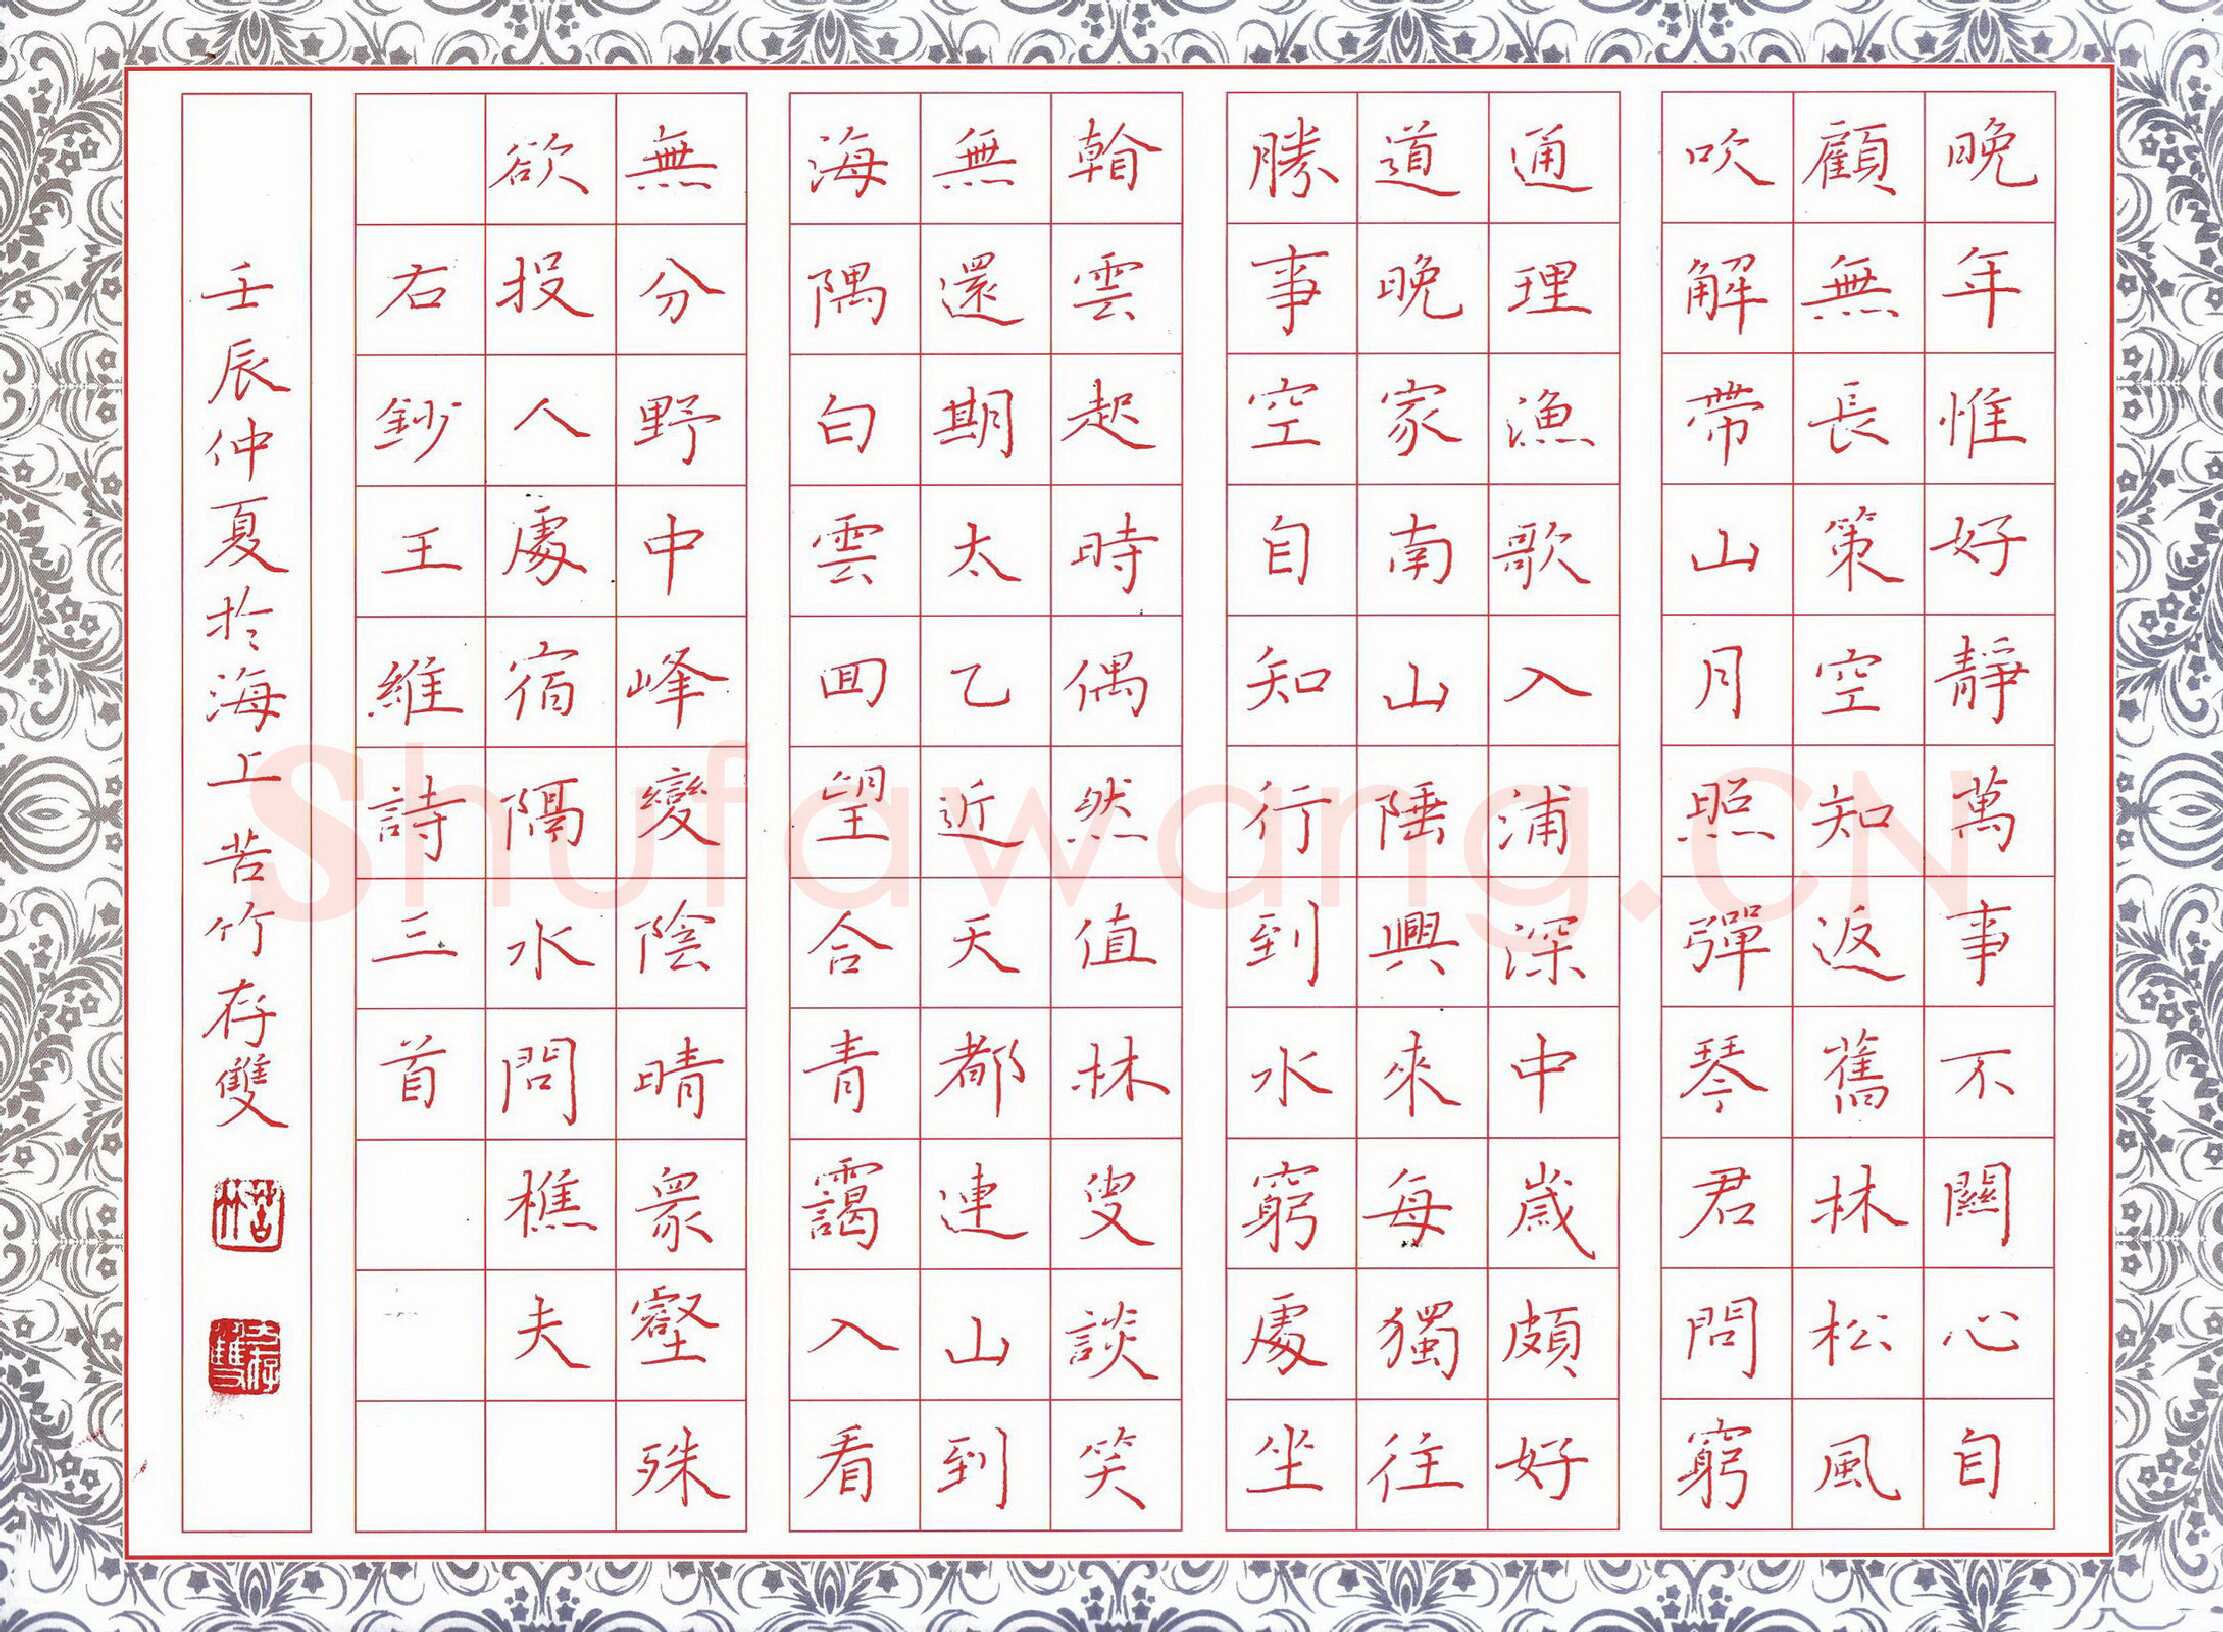 晚年惟好靜萬事不關心自
顧無長策空知返舊林松風
吹解帶山月照彈琴君問窮
通理漁歌入浦深中歲頗好
道晚家南山陲興來每獨往
勝事空自知行到水窮處坐
看雲起時偶然值林叟談笑
無還期太乙近天都連山到
海隅白雲回望合青靄入看
無分野中峰變陰晴眾壑殊
欲投人處宿隔水問樵夫
右鈔王維詩三首
壬辰仲夏於海上苦竹存雙
苦竹
Shufawang.CN